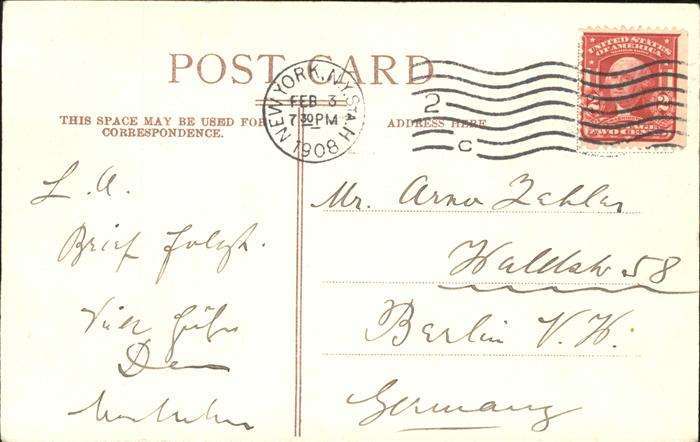 POST CARD
THIS SPACE MAY BE USED FOR
CORRESPONDENCE.
ADDRESS HERE
NEW YORK, N.Y. STA H
FEB 3
7 30 PM
1908
2
C
UNITED STATES
OF AMERICA
2 2
TWO CENTS
L. A.
Brief folgt.
Viele Grüße
Dein
Mr. Arno
Waldstr 58
Berlin N. W.
Germany